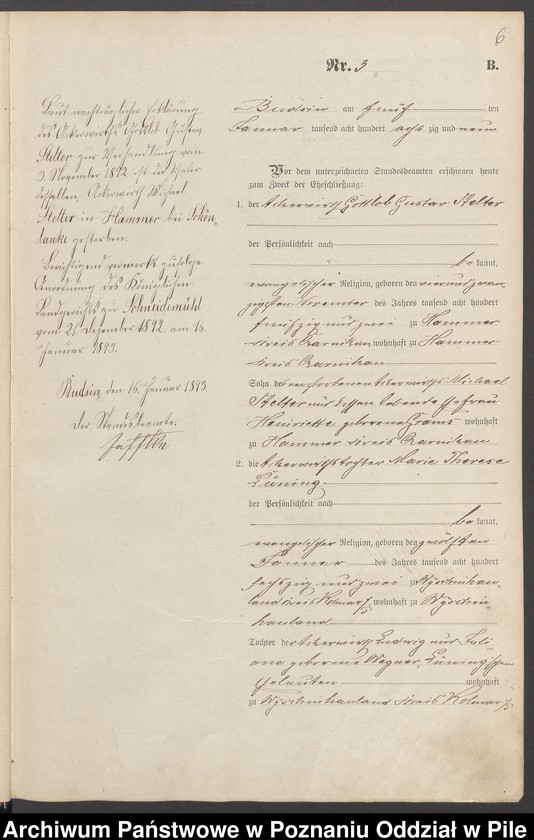 6
Nr. 3
B.
Laut nachträglicher Erklärung
des Ackerwirths Gottlob Gustav
Stelter zur Verhandlung vom
3. November 1892 ist der Vater
desselben, Ackerwirth Michael
Stelter in Hammer bei Schön-
lanke gestorben.
Berichtigend vermerkt zufolge
Anordnung des Königlichen
Landgerichts zu Schneidemühl
vom 21. Dezember 1892. am 16.
Januar 1893.
Budsin, den 16. Januar 1893.
Der Standesbeamte.
Budsin am fünf ten
Januar tausend acht hundert acht zig und neun
Vor dem unterzeichneten Standesbeamten erschienen heute
zum Zweck der Eheschließung:
1. der Ackerwirth Gottlob Gustav Stelter
der Persönlichkeit nach
be kannt,
evangelischer Religion, geboren den vierundzwan-
zigsten November des Jahres tausend acht hundert
fünfzig und zwei zu Hammer
Kreis Czarnikau, wohnhaft zu Hammer
Kreis Czarnikau
Sohn des verstorbenen Ackerwirths Michael
Stelter und dessen lebende Ehefrau
Henriette geborene Grams wohnhaft
zu Hammer Kreis Czarnikau
2. die Ackerwirthstochter Marie Therese
Lüning
der Persönlichkeit nach
be kannt,
evangelischer Religion, geboren den zwölften
Januar des Jahres tausend acht hundert
sechszig und zwei zu Wyschinhau-
land Kreis Kolmar i/P, wohnhaft zu Wyschin-
hauland
Tochter der Ackerwirth Ludwig und Juli-
ane geborene Wegner, Lüning'schen
Eheleuten wohnhaft
zu Wyschinhauland Kreis Kolmar i/P
Archiwum Państwowe w Poznaniu Oddział w Pile